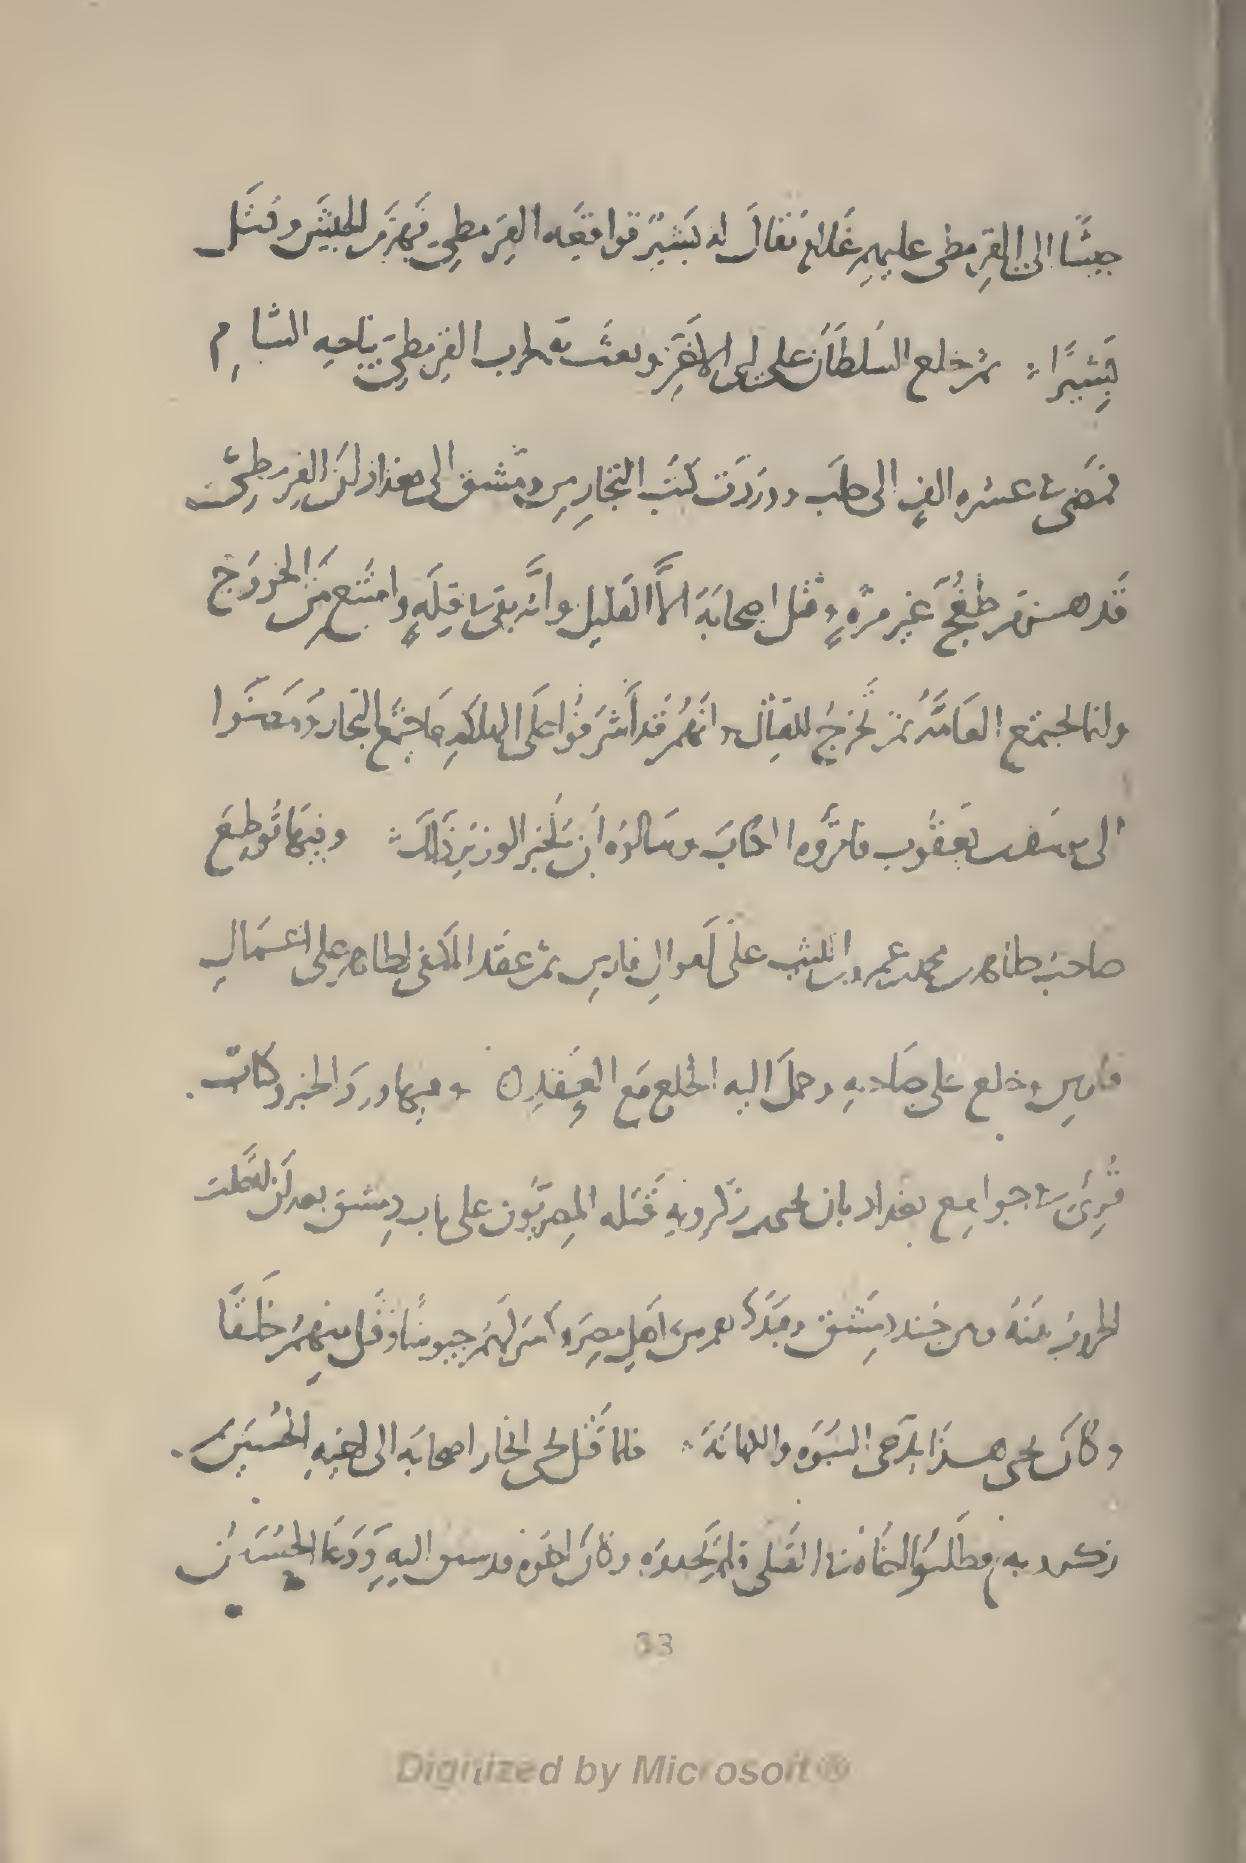 جيشا الى القرمطى عليهم غلام يقال له بشير فواقعه القرمطي فهزم الجيش وقتل
بشيرا ثم خلع السلطان على ابى الاغر وبعث به لحرب القرمطي بناحيه الشام
فمضى في عشره الف الى حلب ووردت كتب التجار من دمشق الى بغداد لان القرمطي
قد هزم طغج غير مره وقتل اصحابه الا القليل وانه بقى في قله وامتنع من الخروج
وانما تجتمع العامة ثم تخرج للقتال وانهم قد اشرفوا على الهلكه فاجتمع التجار ومضوا
الى يوسف بن يعقوب فاقروه الكتاب وسالوه ان يخبر الوزير ذلك وفيها قوطع
صاحب طاهر بن محمد بن عمرو بن الليث على اموال فارس ثم عقد المكتفى لطاهر على اعمال
فارس وخلع على صاحبه وحمل اليه الخلع مع العقد وفيها ورد الخبر وكتاب
قرئ في جوامع بغداد بان يحيى بن زكرويه قتله المصريون على باب دمشق بعد ان اتصلت
الحروب بينه وبين جند دمشق ومددهم من اهل مصر وكسر لهم جيوشا وقتل منهم خلقا
وكان يحيى هذا يدعى النبوه فلما قتل يحيى انحاز اصحابه الى اخيه الحسين بن
زكرويه فطلب اخاه في القتلى فلم يجده وكان اخوه قد سبق اليه ودعا الحسين
33
Digitized by Microsoft®